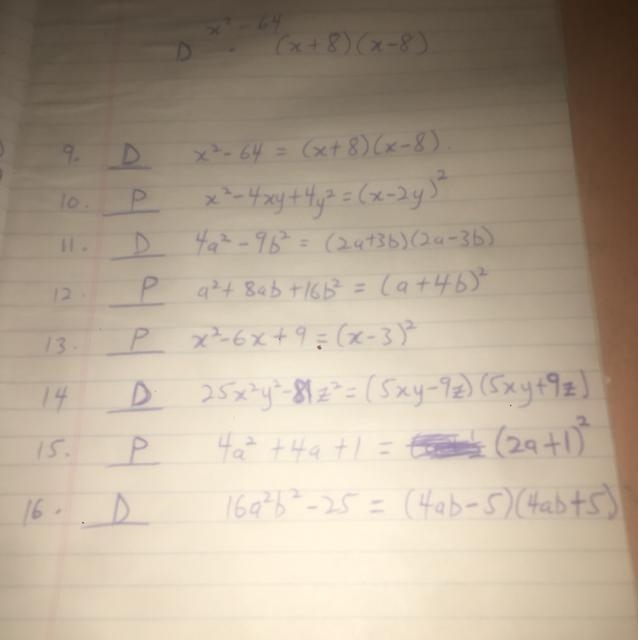 x² - 64
D (x+8)(x-8)
9. D x² - 64 = (x+8)(x-8).
10. P x² - 4xy + 4y² = (x-2y)²
11. D 4a² - 9b² = (2a+3b)(2a-3b)
12. P a² + 8ab + 16b² = (a+4b)²
13. P x² - 6x + 9 = (x-3)²
14 D 25x²y² - 81z² = (5xy-9z)(5xy+9z)
15. P 4a² + 4a + 1 = (2a+1)²
16. D 16a²b² - 25 = (4ab-5)(4ab+5)